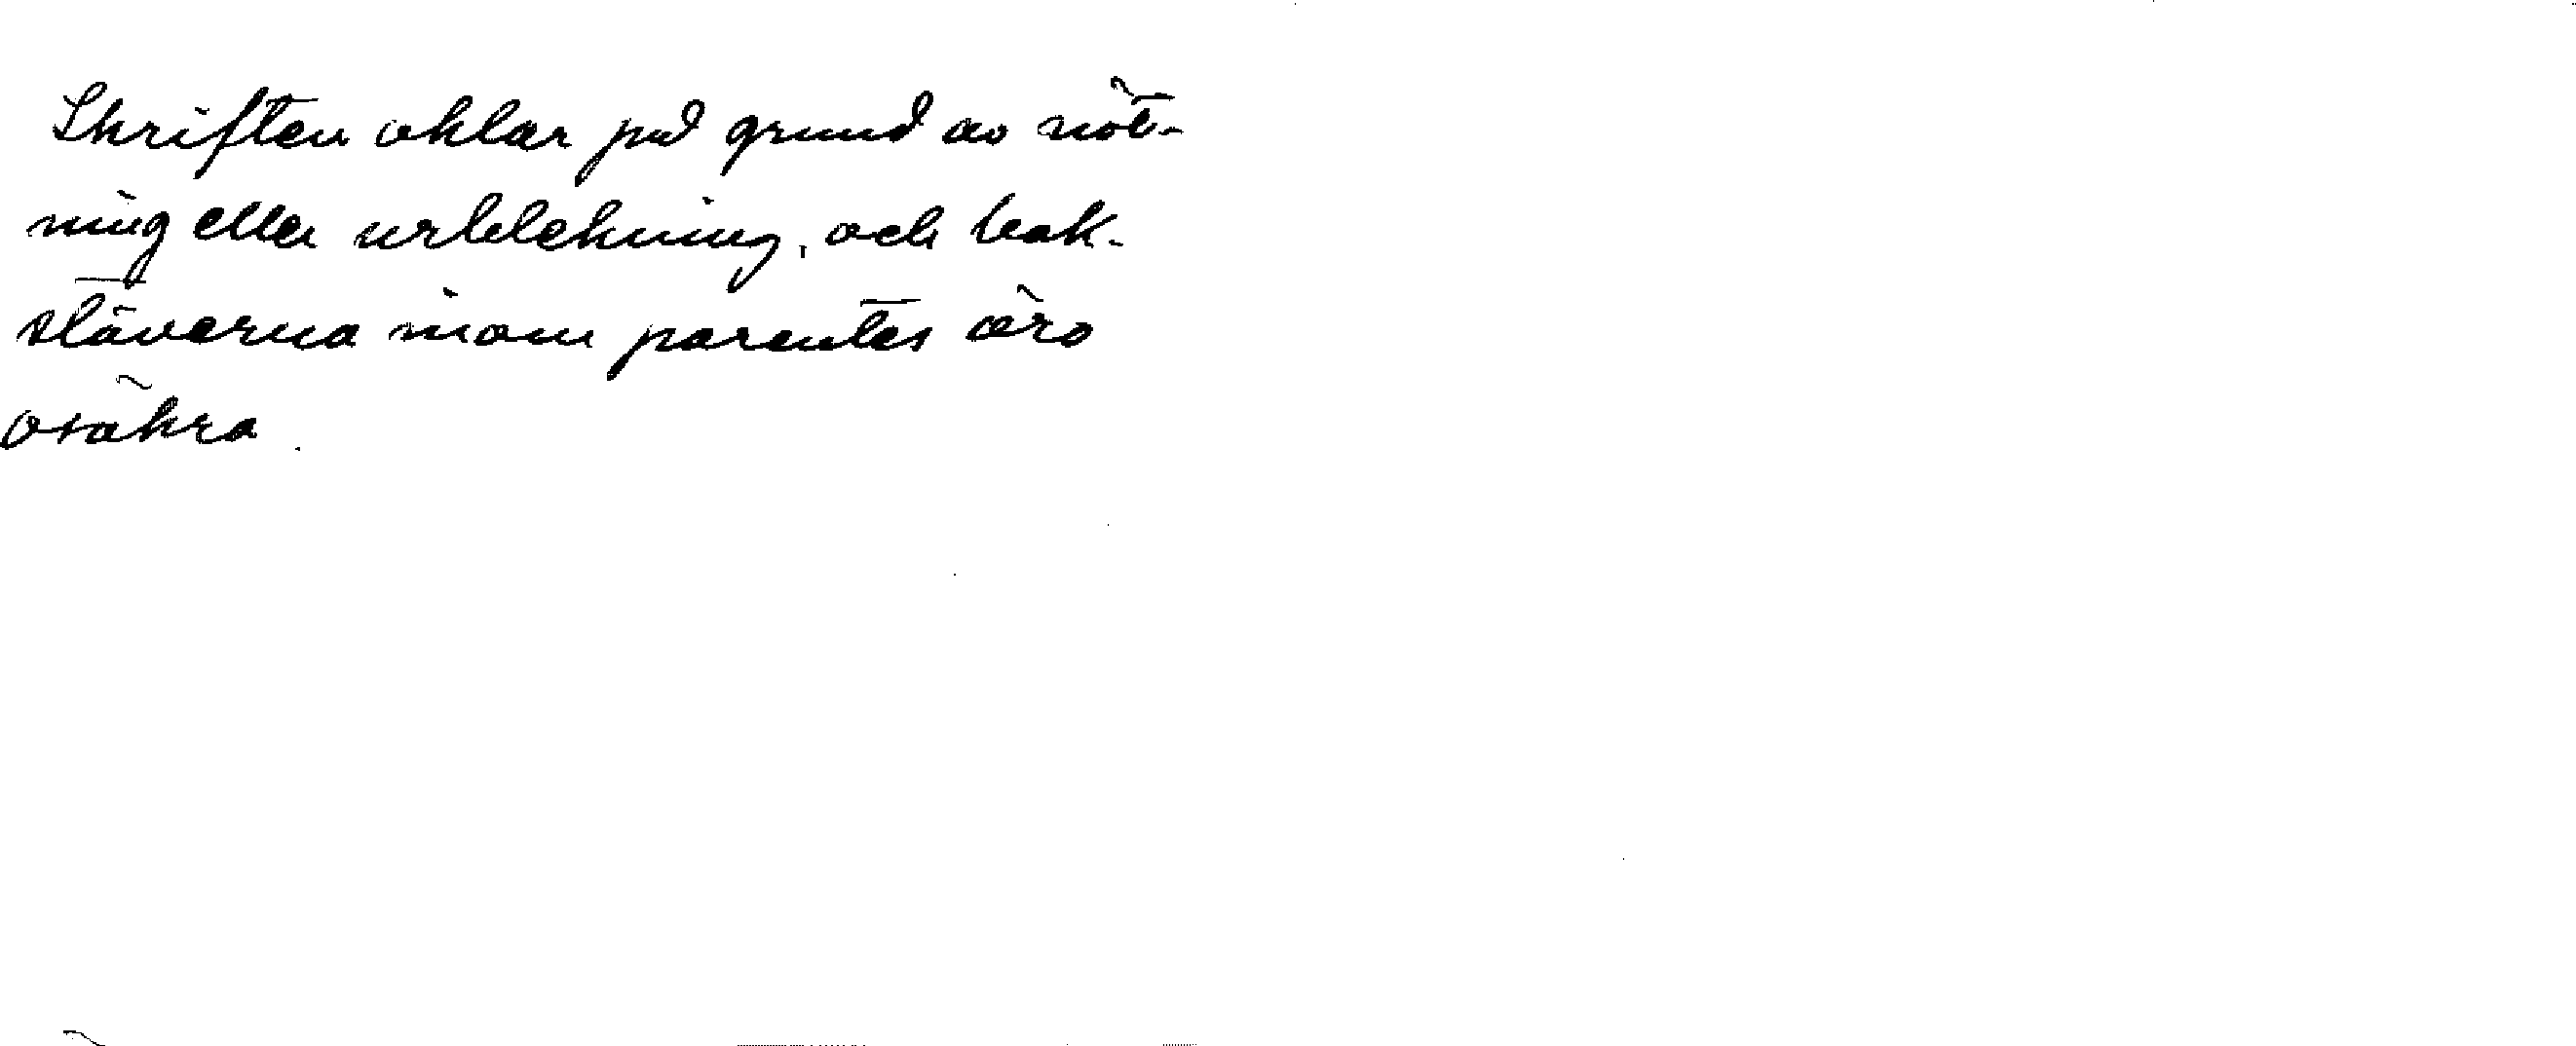 Skriften oklar på grund av nöt-
ning eller urblekning, och bok-
stäverna inom parentes äro
osäkra.